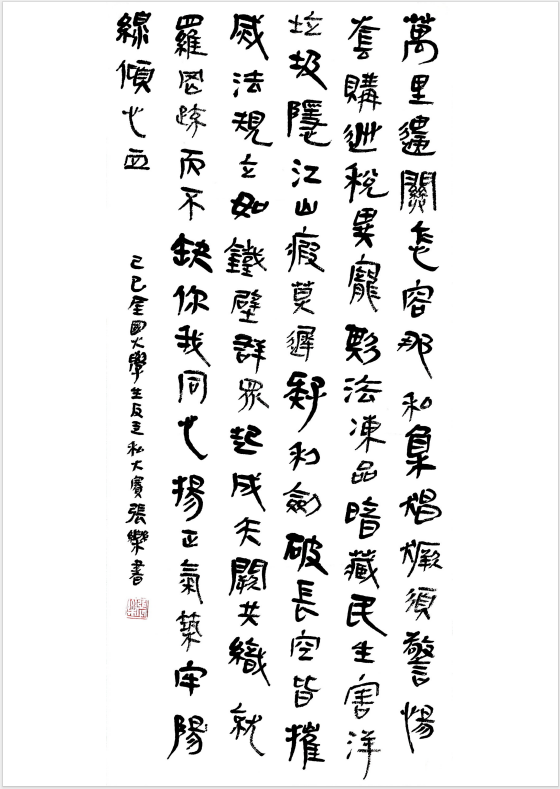 萬里邊關怎容那私梟猖獗須警惕
套購逃稅異寵法凍品暗藏民生害洋
垃圾隱江山瘕莫遲疑利劍破長空皆摧
滅法規立如鐵壁群眾起成天闕共織就
羅疏而不缺你我同心揚正氣築牢陽
線傾心血
乙巳全國大學生反走私大賽張樂書